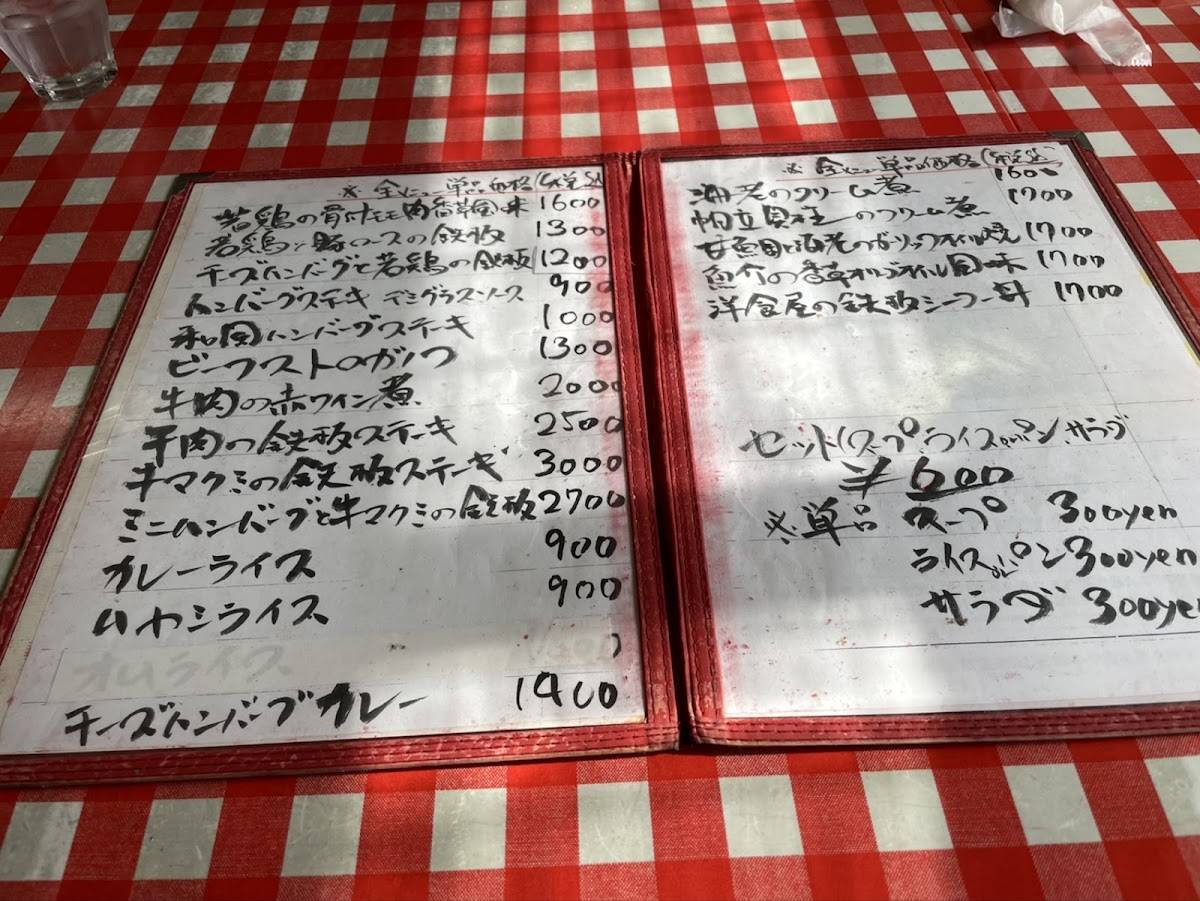 ※全メニュー単品価格(税込)
若鶏の骨付モモ肉香草風味 1600
若鶏と豚ロースの鉄板 1300
チーズハンバーグと若鶏の鉄板 1200
ハンバーグステーキ デミグラスソース 900
和風ハンバーグステーキ 1000
ビーフストロガノフ 1300
牛肉の赤ワイン煮 2000
牛肉の鉄板ステーキ 2500
牛マクミの鉄板ステーキ 3000
ミニハンバーグと牛マクミの鉄板 2700
カレーライス 900
ハヤシライス 900
オムライス
チーズハンバーグカレー 1400
※全メニュー単品価格(税込)
海老のクリーム煮 1600
帆立貝柱のクリーム煮 1700
甘鯛と海老のガーリックオイル焼 1700
魚介の香草オリーブオイル風味 1700
洋食屋の鉄板シーフード 1700
セット(スープ.ライスorパン.サラダ
¥600
※単品 スープ 300yen
ライスorパン 300yen
サラダ 300yen